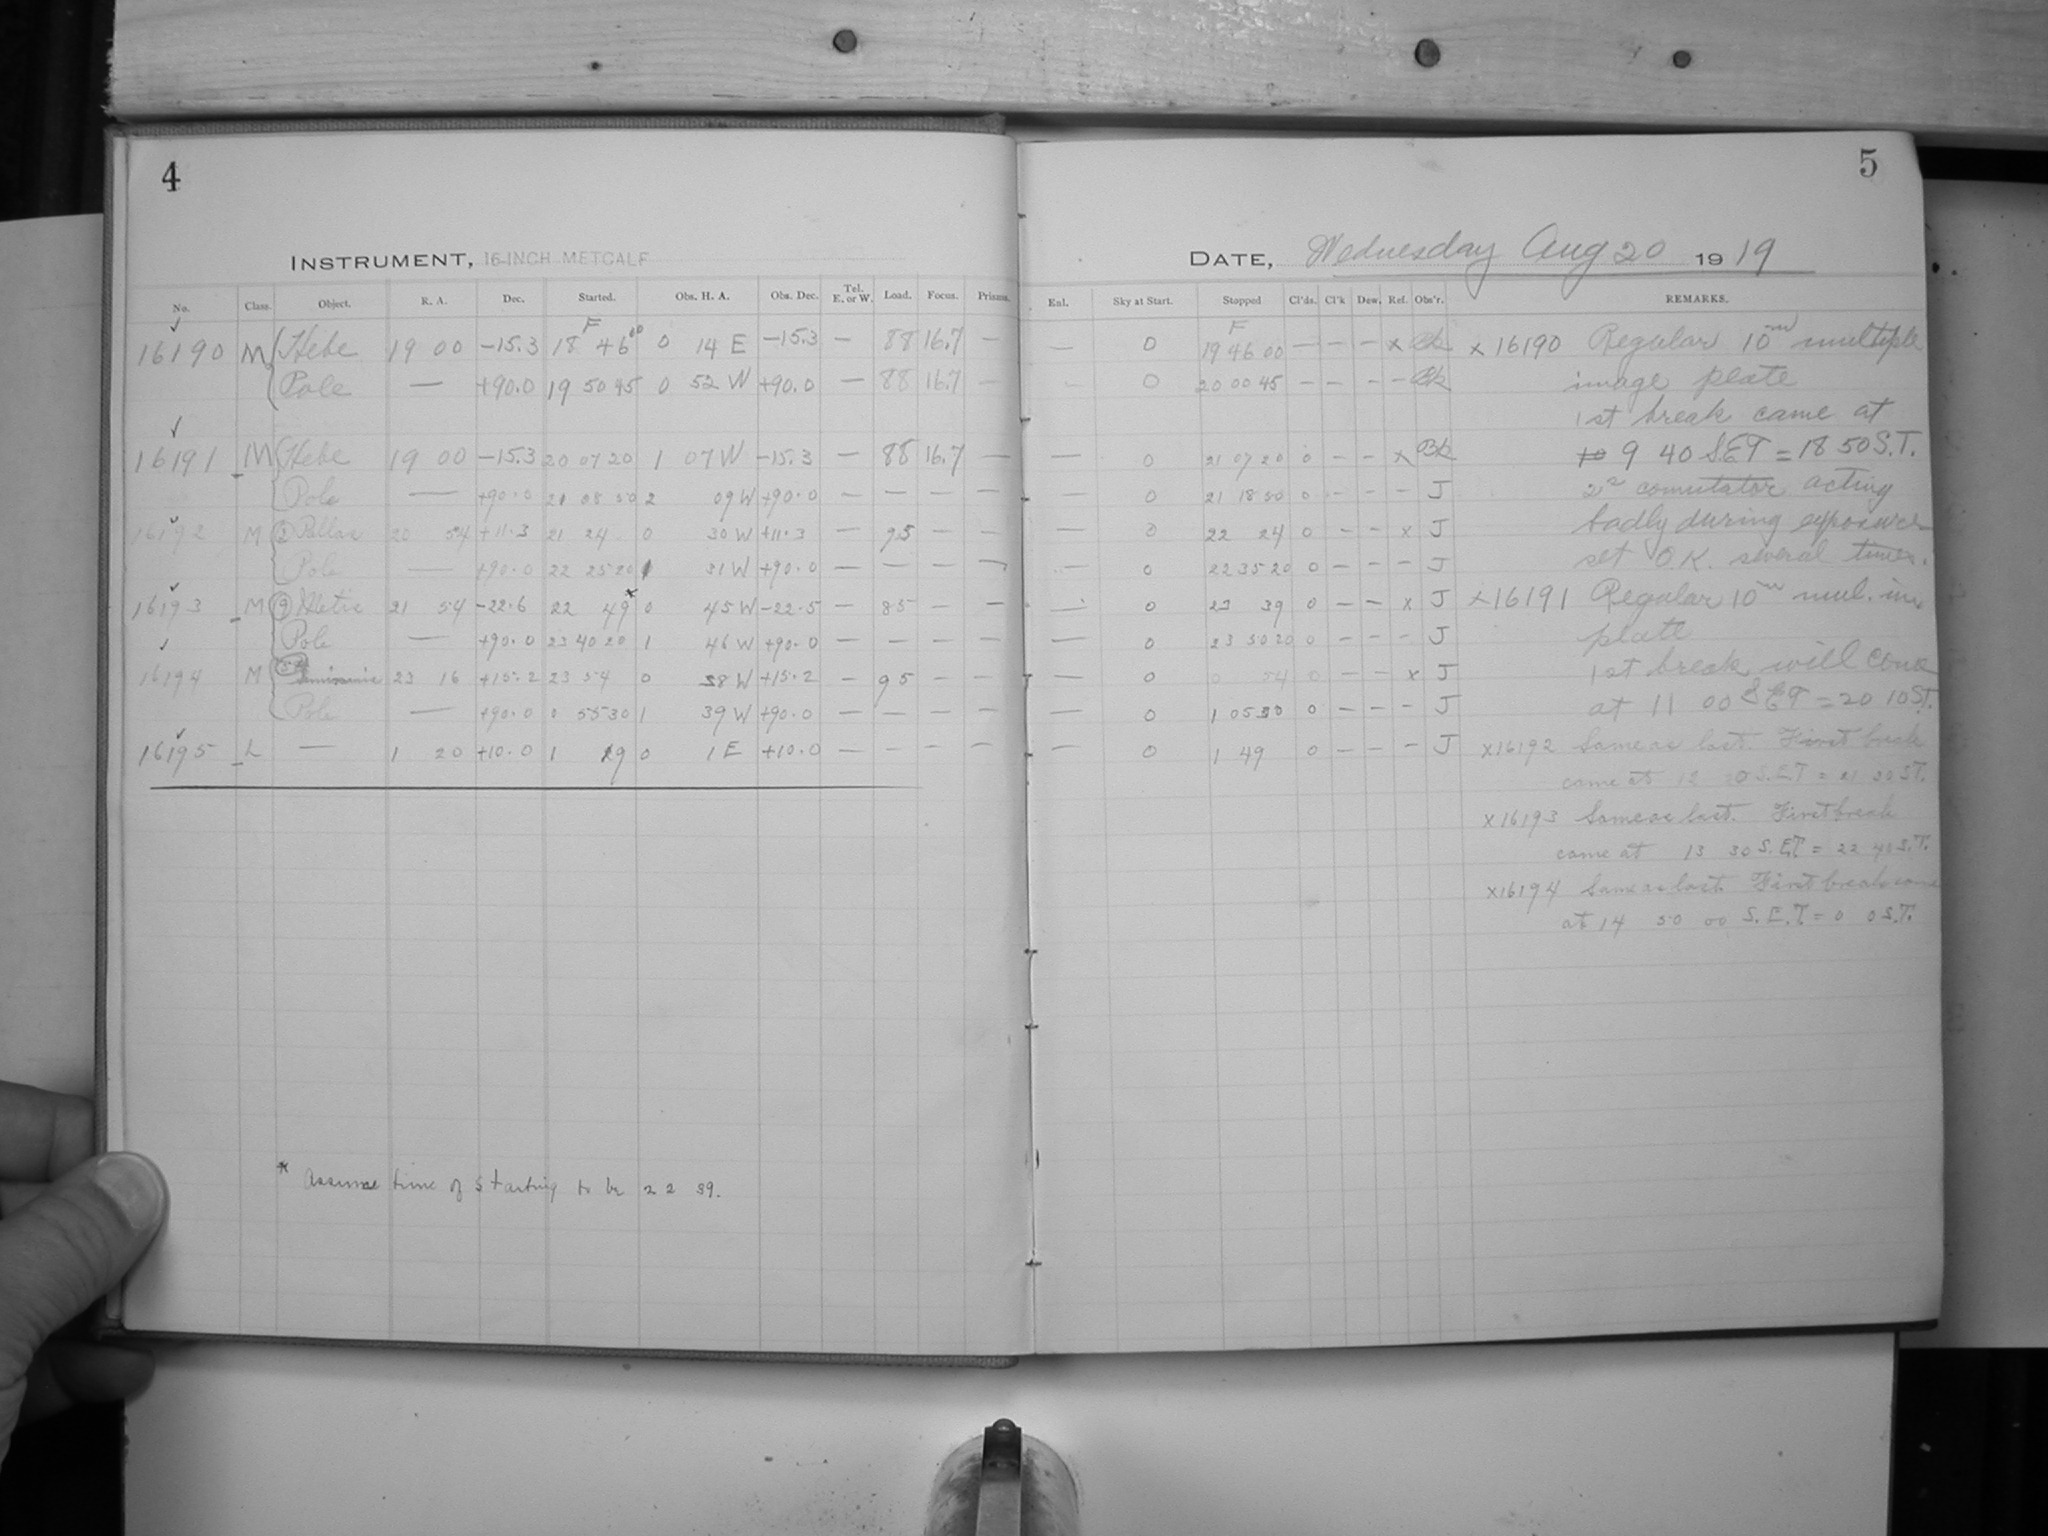 4
INSTRUMENT, 16-INCH METCALF
No. Class. Object. R. A. Dec. Started. Obs. H. A. Obs. Dec. Tel. E. or W. Load. Focus. Prisms.
16190 M Hebe 19 00 -15.3 18 F 46 00 0 14 E -15.3 — 88 16.7 —
Pole — +90.0 19 50 45 0 52 W +90.0 — 88 16.7 —
16191 M Hebe 19 00 -15.3 20 07 20 1 07 W -15.3 — 88 16.7 —
Pole — +90.0 21 08 50 2 09 W +90.0 — — — —
16192 M (2) Pallas 20 54 +11.3 21 24 0 30 W +11.3 — 95 — —
Pole — +90.0 22 25 20 1 31 W +90.0 — — — —
16193 M (9) Metis 21 54 -22.6 22 49* 0 45 W -22.5 — 85 — —
Pole — +90.0 23 40 20 1 46 W +90.0 — — — —
16194 M 23 16 +15.2 23 54 0 38 W +15.2 — 95 — —
Pole — +90.0 0 55 30 1 39 W +90.0 — — — —
16195 L — 1 20 +10.0 1 19 0 1 E +10.0 — — — —
* Assume time of starting to be 22 39.
5
DATE, Wednesday Aug 20 1919
Enl. Sky at Start. Stopped Cl'ds. Cl'k Dew. Ref. Obs'r. REMARKS.
— 0 F 19 46 00 — — — x Bk
— 0 20 00 45 — — — — Bk
— 0 21 07 20 0 — — x Bk
— 0 21 18 50 0 — — — J
— 0 22 24 0 — — x J
— 0 22 35 20 0 — — — J
— 0 23 39 0 — — x J
— 0 23 50 20 0 — — — J
— 0 0 54 0 — — x J
— 0 1 05 30 0 — — — J
— 0 1 49 0 — — — J
x 16190 Regular 10m multiple
image plate
1st break came at
9 40 S.E.T = 18 50 S.T.
2d comutator acting
badly during exposure
set O.K. several times.
x16191 Regular 10m mul. im
plate
1st break will come
at 11 00 S.E.T = 20 10 S.T.
x16192 Same as last. First break
came at 12 20 S.E.T = 21 30 S.T.
x16193 Same as last. First break
came at 13 30 S.E.T = 22 40 S.T.
x16194 Same as last. First break came
at 14 50 00 S.E.T = 0 0 S.T.